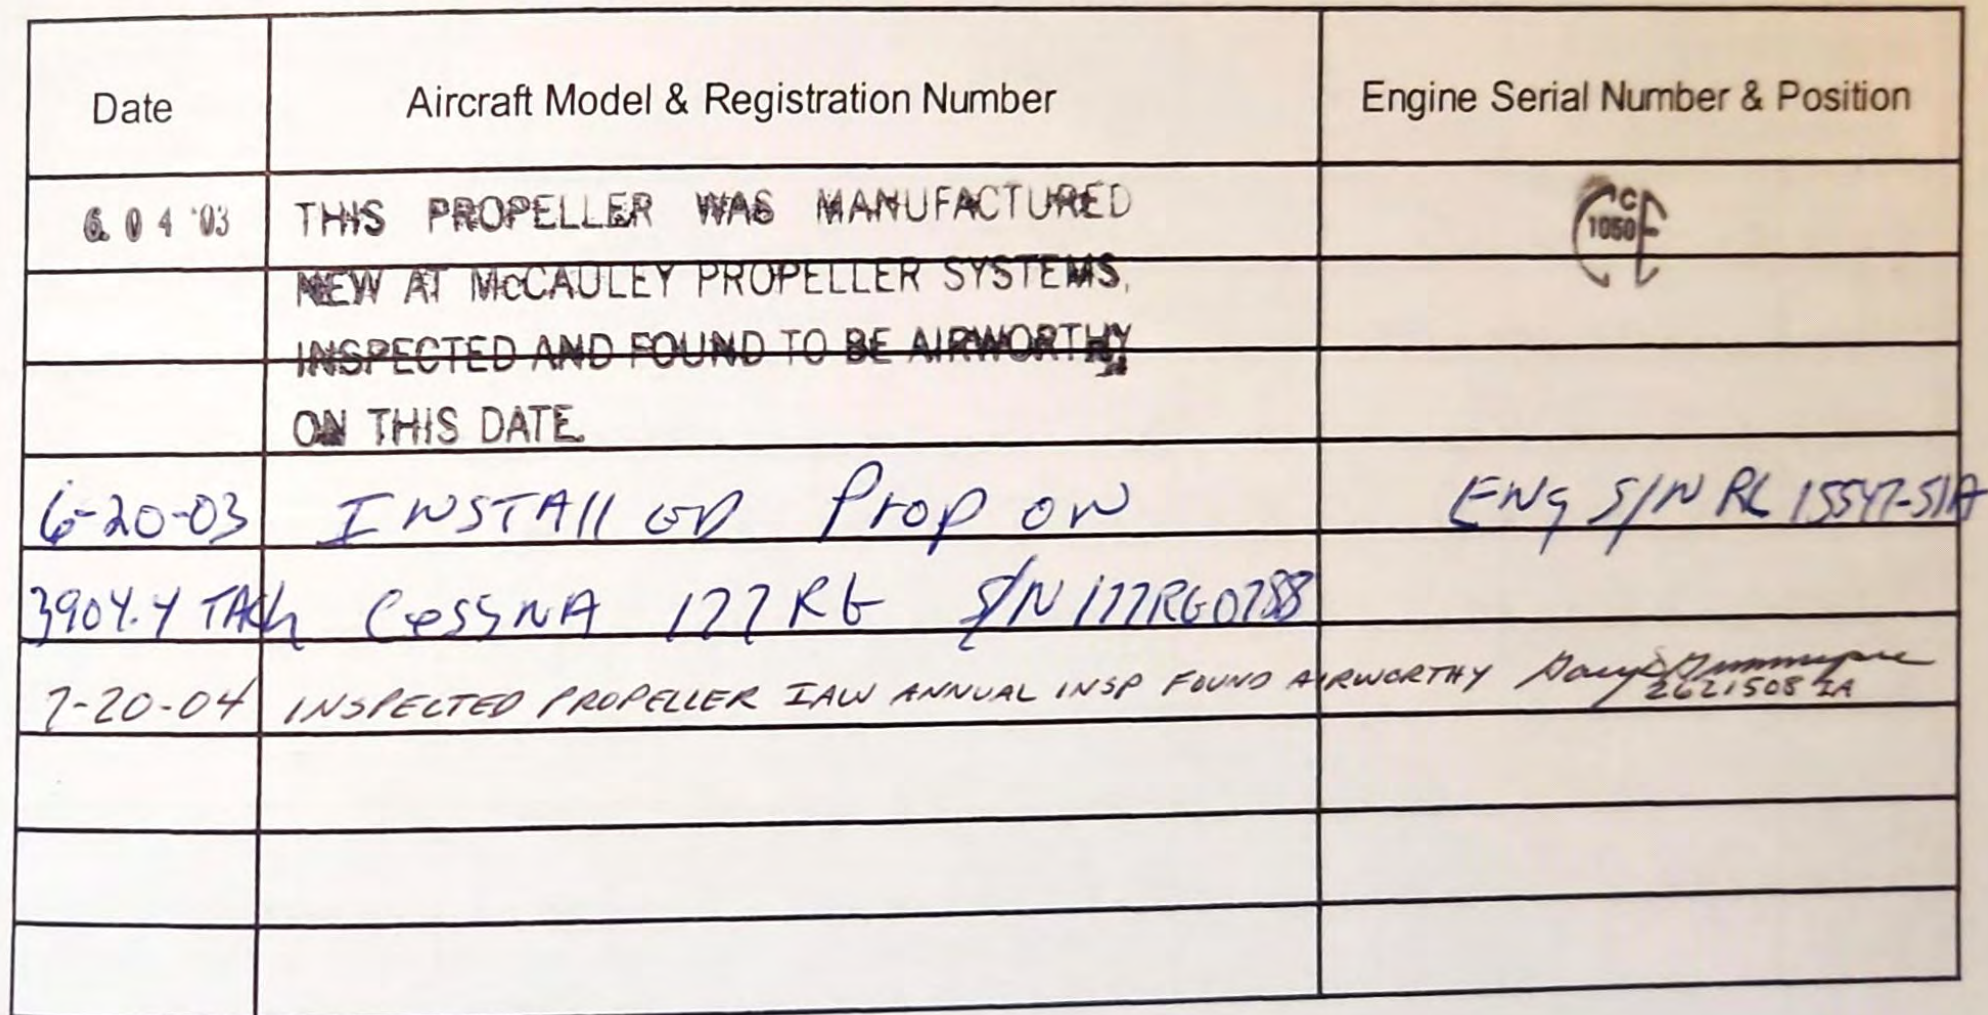 Date Aircraft Model & Registration Number Engine Serial Number & Position
6 04 '03 THIS PROPELLER WAS MANUFACTURED
C
1050
NEW AT McCAULEY PROPELLER SYSTEMS,
INSPECTED AND FOUND TO BE AIRWORTHY
ON THIS DATE.
6-20-03 INSTAllED Prop ON ENg S/N RL 15547-51A
3904.4 TACh CessNA 177RG S/N 177RG0788
7-20-04 INSPECTED PROPELLER IAW ANNUAL INSP FOUND AIRWORTHY
2621508 IA